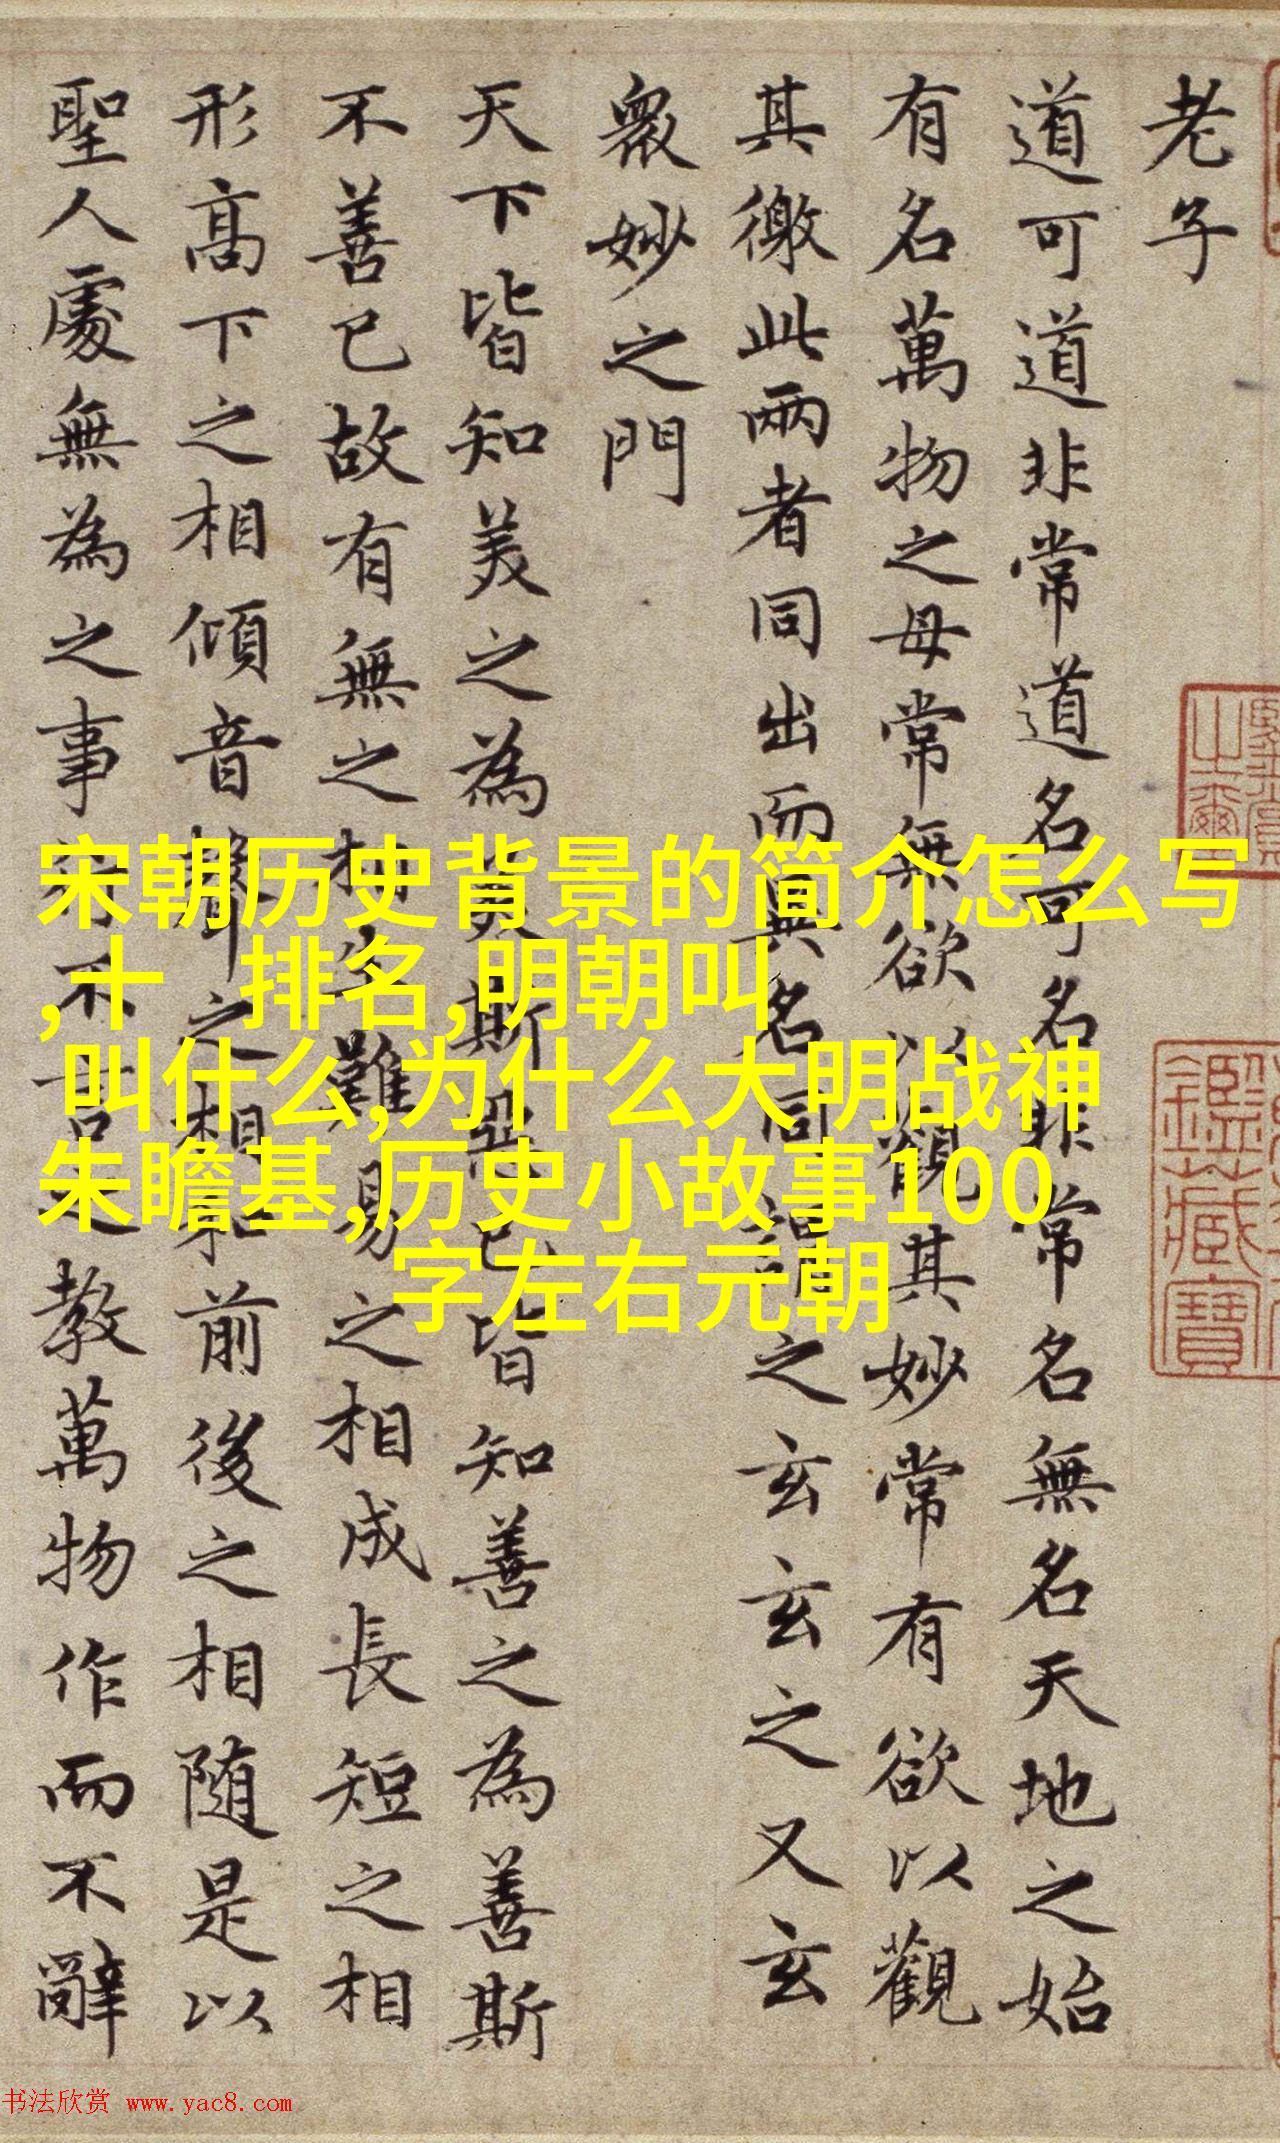 老子
道可道非常道名可名非常名無名天地之始
有名萬物之母常無欲以觀其妙常有欲以觀
其徼此兩者同出而異名同謂之玄玄之又玄
衆妙之門
天下皆知美之為美斯惡已皆知善之為善斯
不善已故有無之相生難易之相成長短之相
形高下之相傾音聲之相和前後之相随是以
聖人處無為之事行不言之教萬物作而不辭
宋朝历史背景的简介怎么写
,十 排名,明朝叫
叫什么,为什么大明战神
朱瞻基,历史小故事100
字左右元朝
鑑藏寶
书法欣赏 www.yac8.com